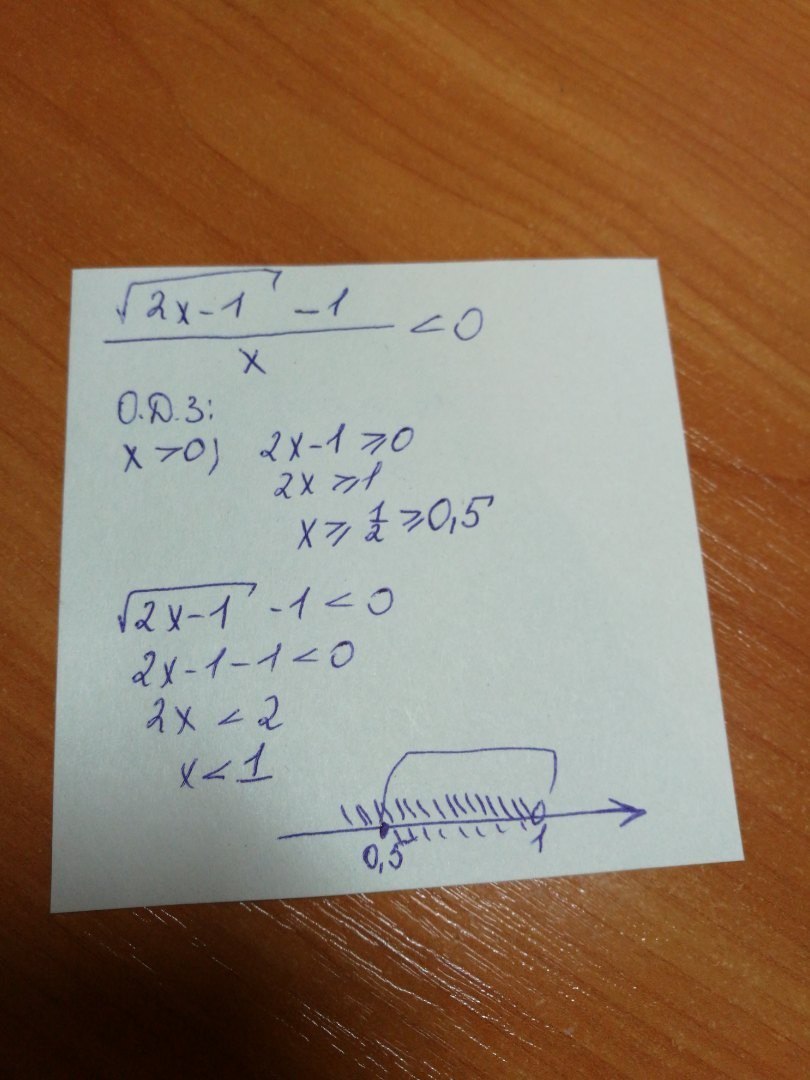 √(2x-1) -1 / x < 0
О.Д.З:
x > 0; 2x-1 ⩾ 0
2x ⩾ 1
x ⩾ 1/2 ⩾ 0,5
√(2x-1) -1 < 0
2x-1-1 < 0
2x < 2
x < 1
0,5 1